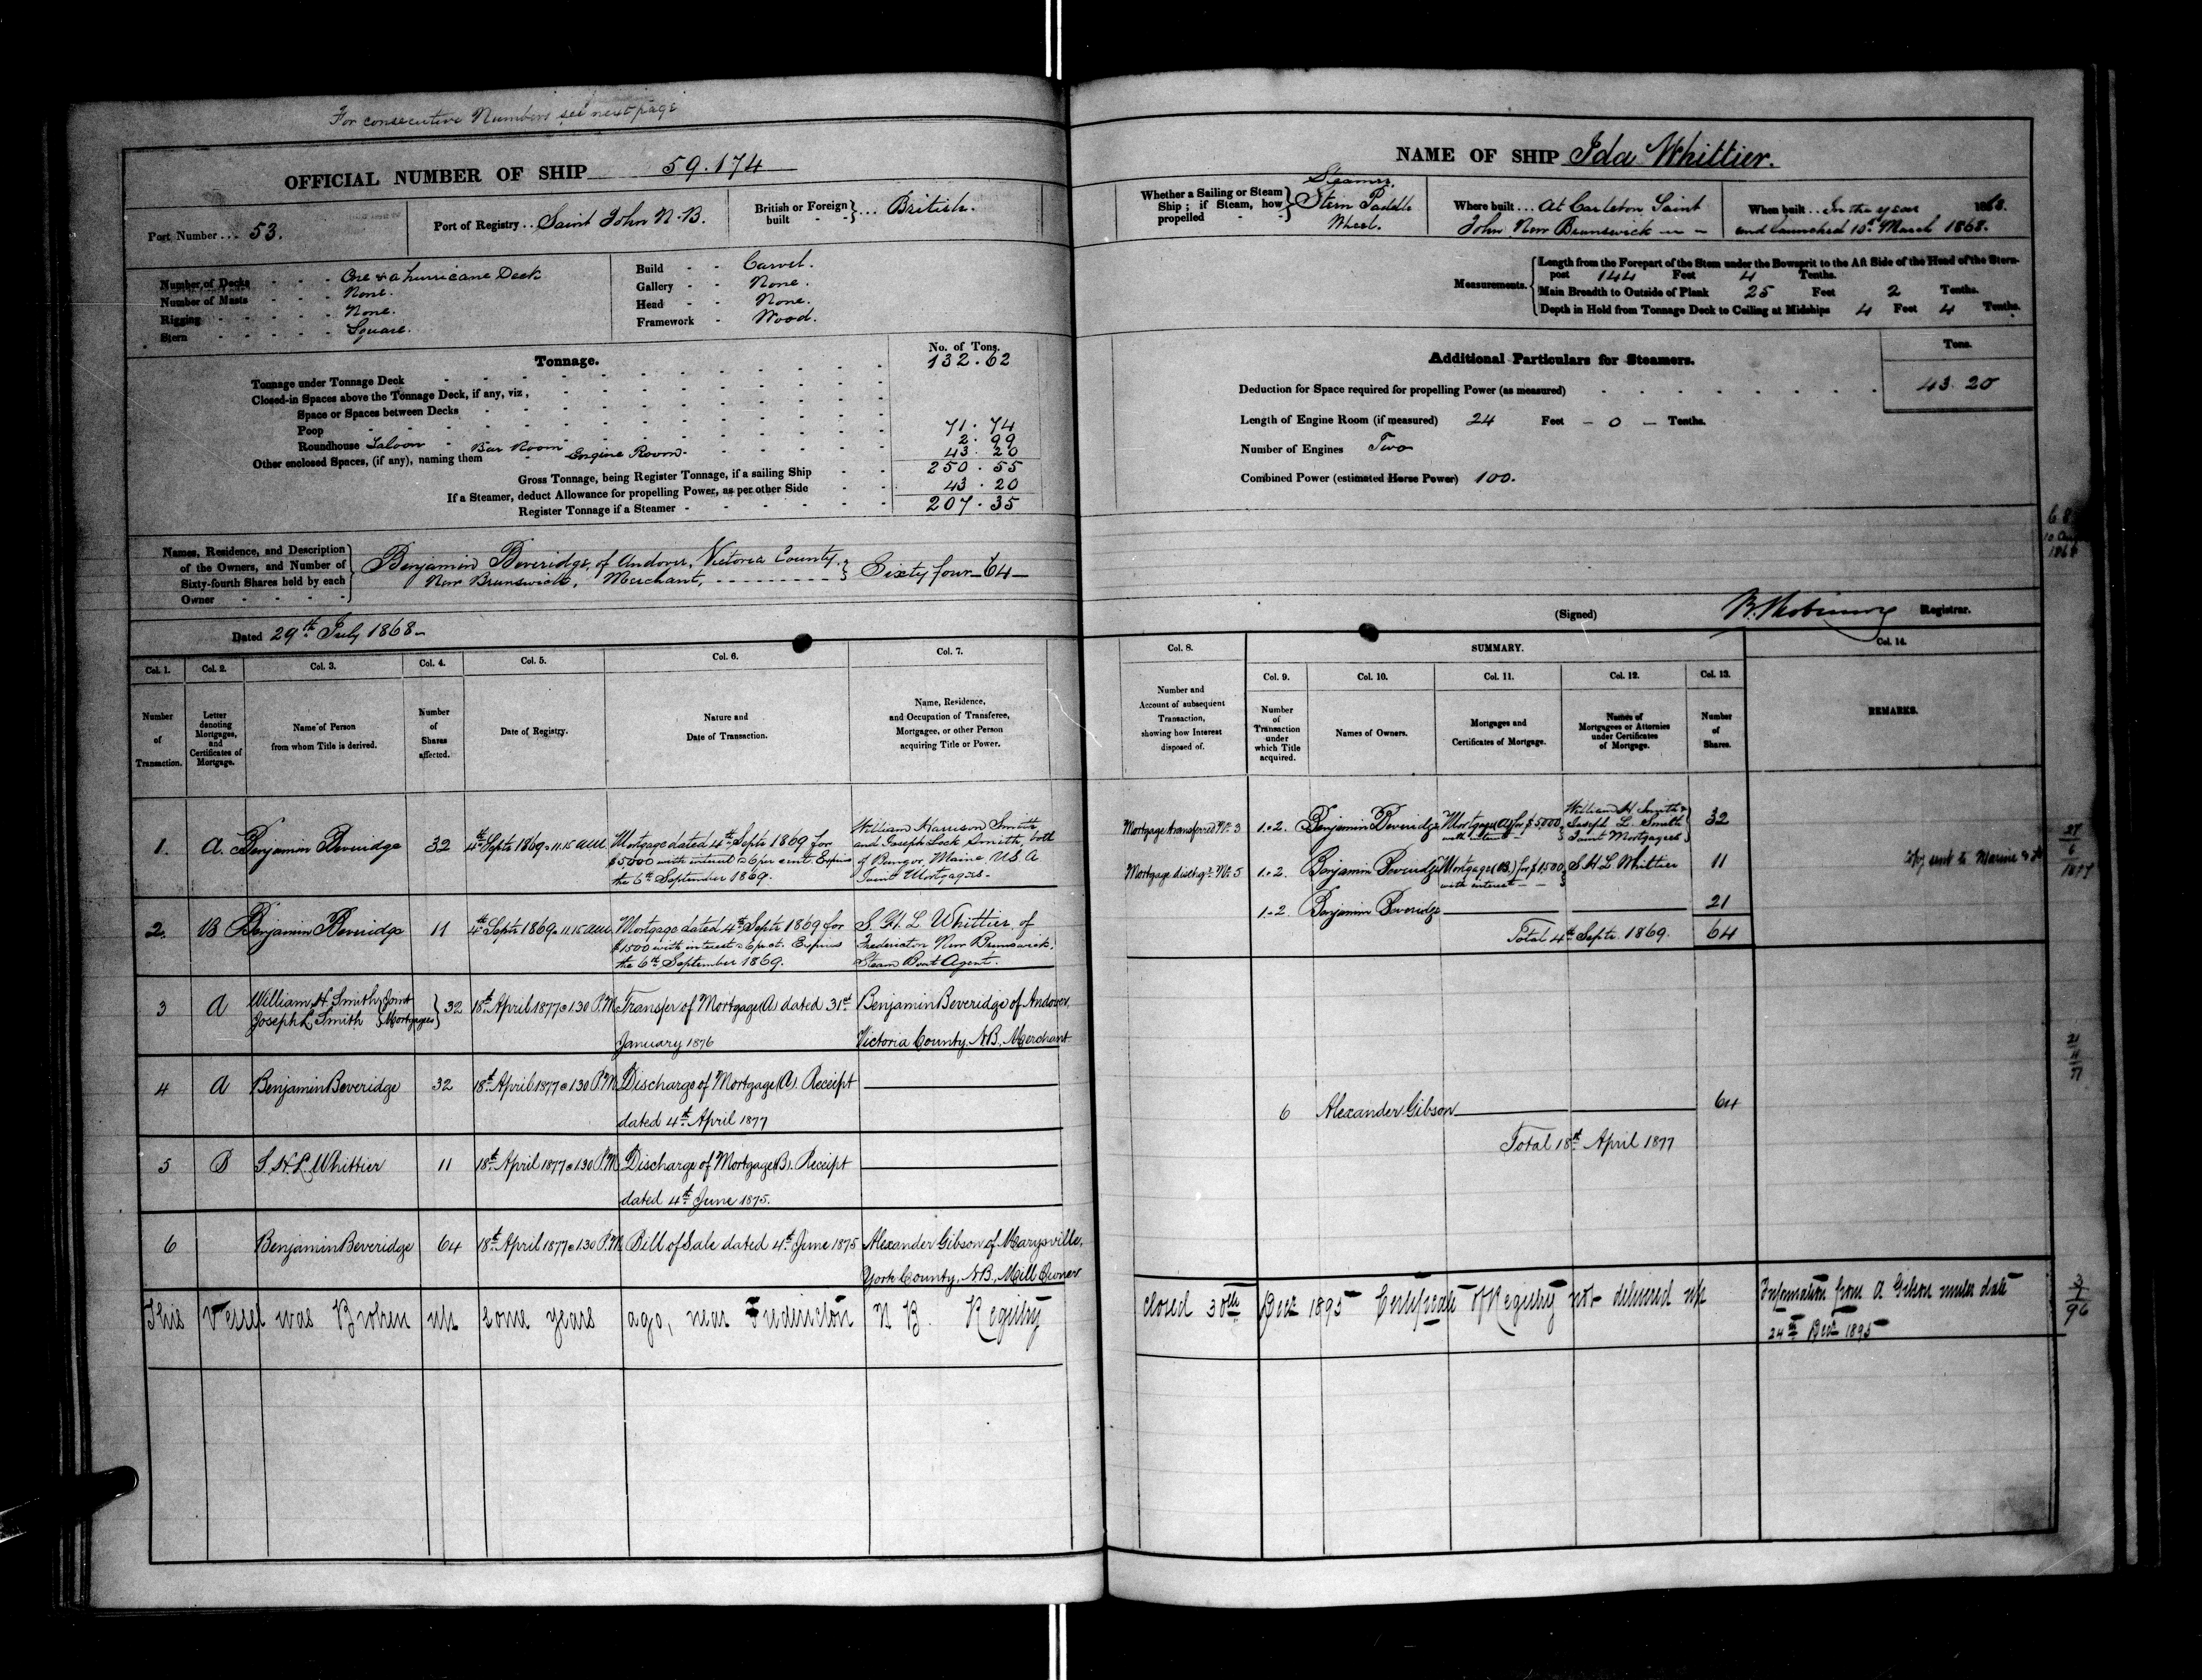 For consecutive Numbers see next page
OFFICIAL NUMBER OF SHIP 59.174
Port Number ... 53.
Port of Registry .. Saint John N.B.
British or Foreign built - - } ... British.
Number of Decks - - - One & a hurricane Deck
Number of Masts - - - None.
Rigging - - - - - None.
Stern - - - - - Square.
Build - - Carvel.
Gallery - - None.
Head - - None.
Framework - Wood.
Tonnage.
No. of Tons.
Tonnage under Tonnage Deck 132.62
Closed-in Spaces above the Tonnage Deck, if any, viz,
Space or Spaces between Decks
Poop
Roundhouse Saloon 71.74
Other enclosed Spaces, (if any), naming them Bar Room 2.99
Engine Room. 43.20
Gross Tonnage, being Register Tonnage, if a sailing Ship 250.55
If a Steamer, deduct Allowance for propelling Power, as per other Side 43.20
Register Tonnage if a Steamer 207.35
Names, Residence, and Description of the Owners, and Number of Sixty-fourth Shares held by each Owner
Benjamin Beveridge, of Andover, Victoria County,
New Brunswick, Merchant, } Sixty four - 64 -
Dated 29th July 1868 -
Col. 1. Col. 2. Col. 3. Col. 4. Col. 5. Col. 6. Col. 7.
Number of Transaction.
Letter denoting Mortgages, and Certificates of Mortgage.
Name of Person from whom Title is derived.
Number of Shares affected.
Date of Registry.
Nature and Date of Transaction.
Name, Residence, and Occupation of Transferee, Mortgagee, or other Person acquiring Title or Power.
1. A. Benjamin Beveridge 32 4th Septr 1869 @ 11.15 AM
Mortgage dated 4th Septr 1869 for
$5000 with interest @ 6 per cent. Expires
the 6th September 1869.
William Harrison Smith
and Joseph Lock Smith, both
of Bangor, Maine U S A
Joint Mortgagees -
2. B Benjamin Beveridge 11 4th Septr 1869 @ 11.15 AM
Mortgage dated 4th Septr 1869 for
$1500 with interest @ 6 pr ct. Expires
the 6th September 1869.
S. H. L. Whittier of
Fredericton New Brunswick,
Steam Boat Agent.
3 A William H. Smith } Joint
Joseph L. Smith } Mortgagees } 32 18th April 1877 @ 1.30 P.M.
Transfer of Mortgage (A) dated 31st
January 1876
Benjamin Beveridge of Andover,
Victoria County, N.B., Merchant
4 A Benjamin Beveridge 32 18th April 1877 @ 1.30 P.M.
Discharge of Mortgage (A). Receipt
dated 4th April 1877
5 B S. H. L. Whittier 11 18th April 1877 @ 1.30 P.M.
Discharge of Mortgage (B). Receipt
dated 4th June 1875.
6 Benjamin Beveridge 64 18th April 1877 @ 1.30 P.M.
Bill of Sale dated 4th June 1875
Alexander Gibson of Marysville,
York County, N.B., Mill Owner
This Vessel was Broken up some years ago, near Fredericton N B. Registry
NAME OF SHIP Ida Whittier.
Whether a Sailing or Steam Ship; if Steam, how propelled - - } Steamer,
Stern Paddle
Wheel.
Where built ... At Carleton Saint
John New Brunswick
When built .. In the year 1868.
and launched 10th March 1868.
Measurements.
Length from the Forepart of the Stem under the Bowsprit to the Aft Side of the Head of the Stern-
post 144 Feet 4 Tenths.
Main Breadth to Outside of Plank 25 Feet 2 Tenths.
Depth in Hold from Tonnage Deck to Ceiling at Midships 4 Feet 4 Tenths.
Additional Particulars for Steamers.
Tons.
Deduction for Space required for propelling Power (as measured) 43.20
Length of Engine Room (if measured) 24 Feet - 0 - Tenths.
Number of Engines Two
Combined Power (estimated Horse Power) 100.
(Signed) Registrar.
Col. 8. SUMMARY. Col. 14.
Col. 9. Col. 10. Col. 11. Col. 12. Col. 13.
Number and Account of subsequent Transaction, showing how Interest disposed of.
Number of Transaction under which Title acquired.
Names of Owners.
Mortgages and Certificates of Mortgage.
Names of Mortgagees or Attornies under Certificates of Mortgage.
Number of Shares.
REMARKS.
Mortgage transferred No. 3 1.&2. Benjamin Beveridge Mortgage (A) for $5000, with interest
William H. Smith & Joseph L. Smith Joint Mortgagees 32
Mortgage dischgd. No. 5 1.&2. Benjamin Beveridge Mortgage (B) for $1500, with interest S H L Whittier 11
1.&2. Benjamin Beveridge 21
Total 4th Septr. 1869. 64
Copy sent to Marine &
27
6
1877
21
4
77
6 Alexander Gibson 64
Total 18th April 1877
closed 30th Decr 1895 Certificate of Registry not delivered up
Information from A Gibson under date
24th Decr 1895
3
1
96